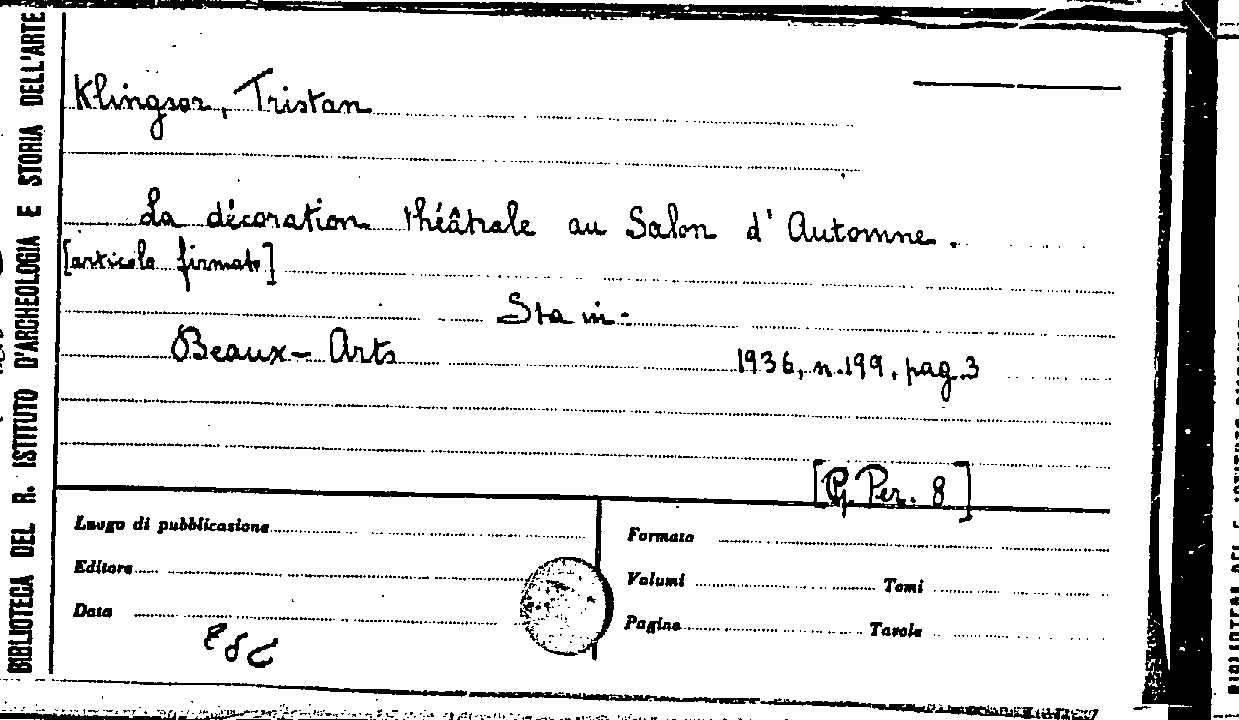 BIBLIOTECA DEL R. ISTITUTO D'ARCHEOLOGIA E STORIA DELL'ARTE
Klingsor, Tristan
La décoration théâtrale au Salon d'Automne.
[articolo firmato]
Sta in:
Beaux-Arts 1936, n.199, pag.3
[G. Per. 8]
Luogo di pubblicazione Formato
Editore Volumi Tomi
Data Pagine Tavole